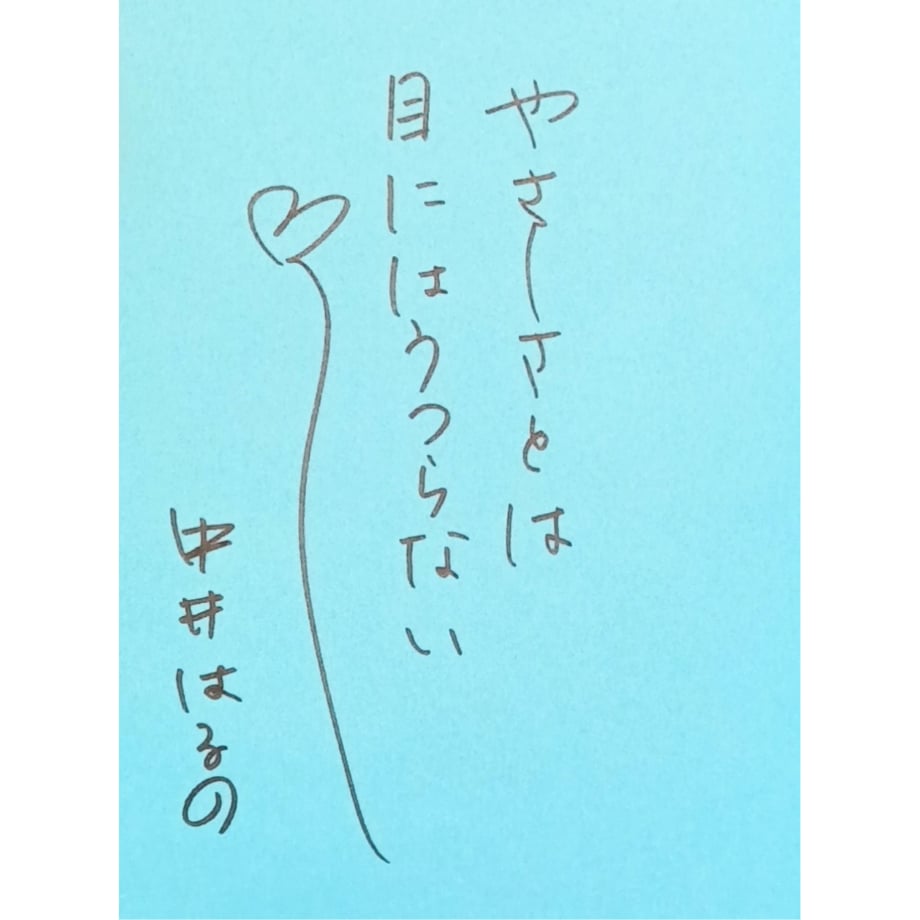 やさしさとは
目にはうつらない
中井はるの